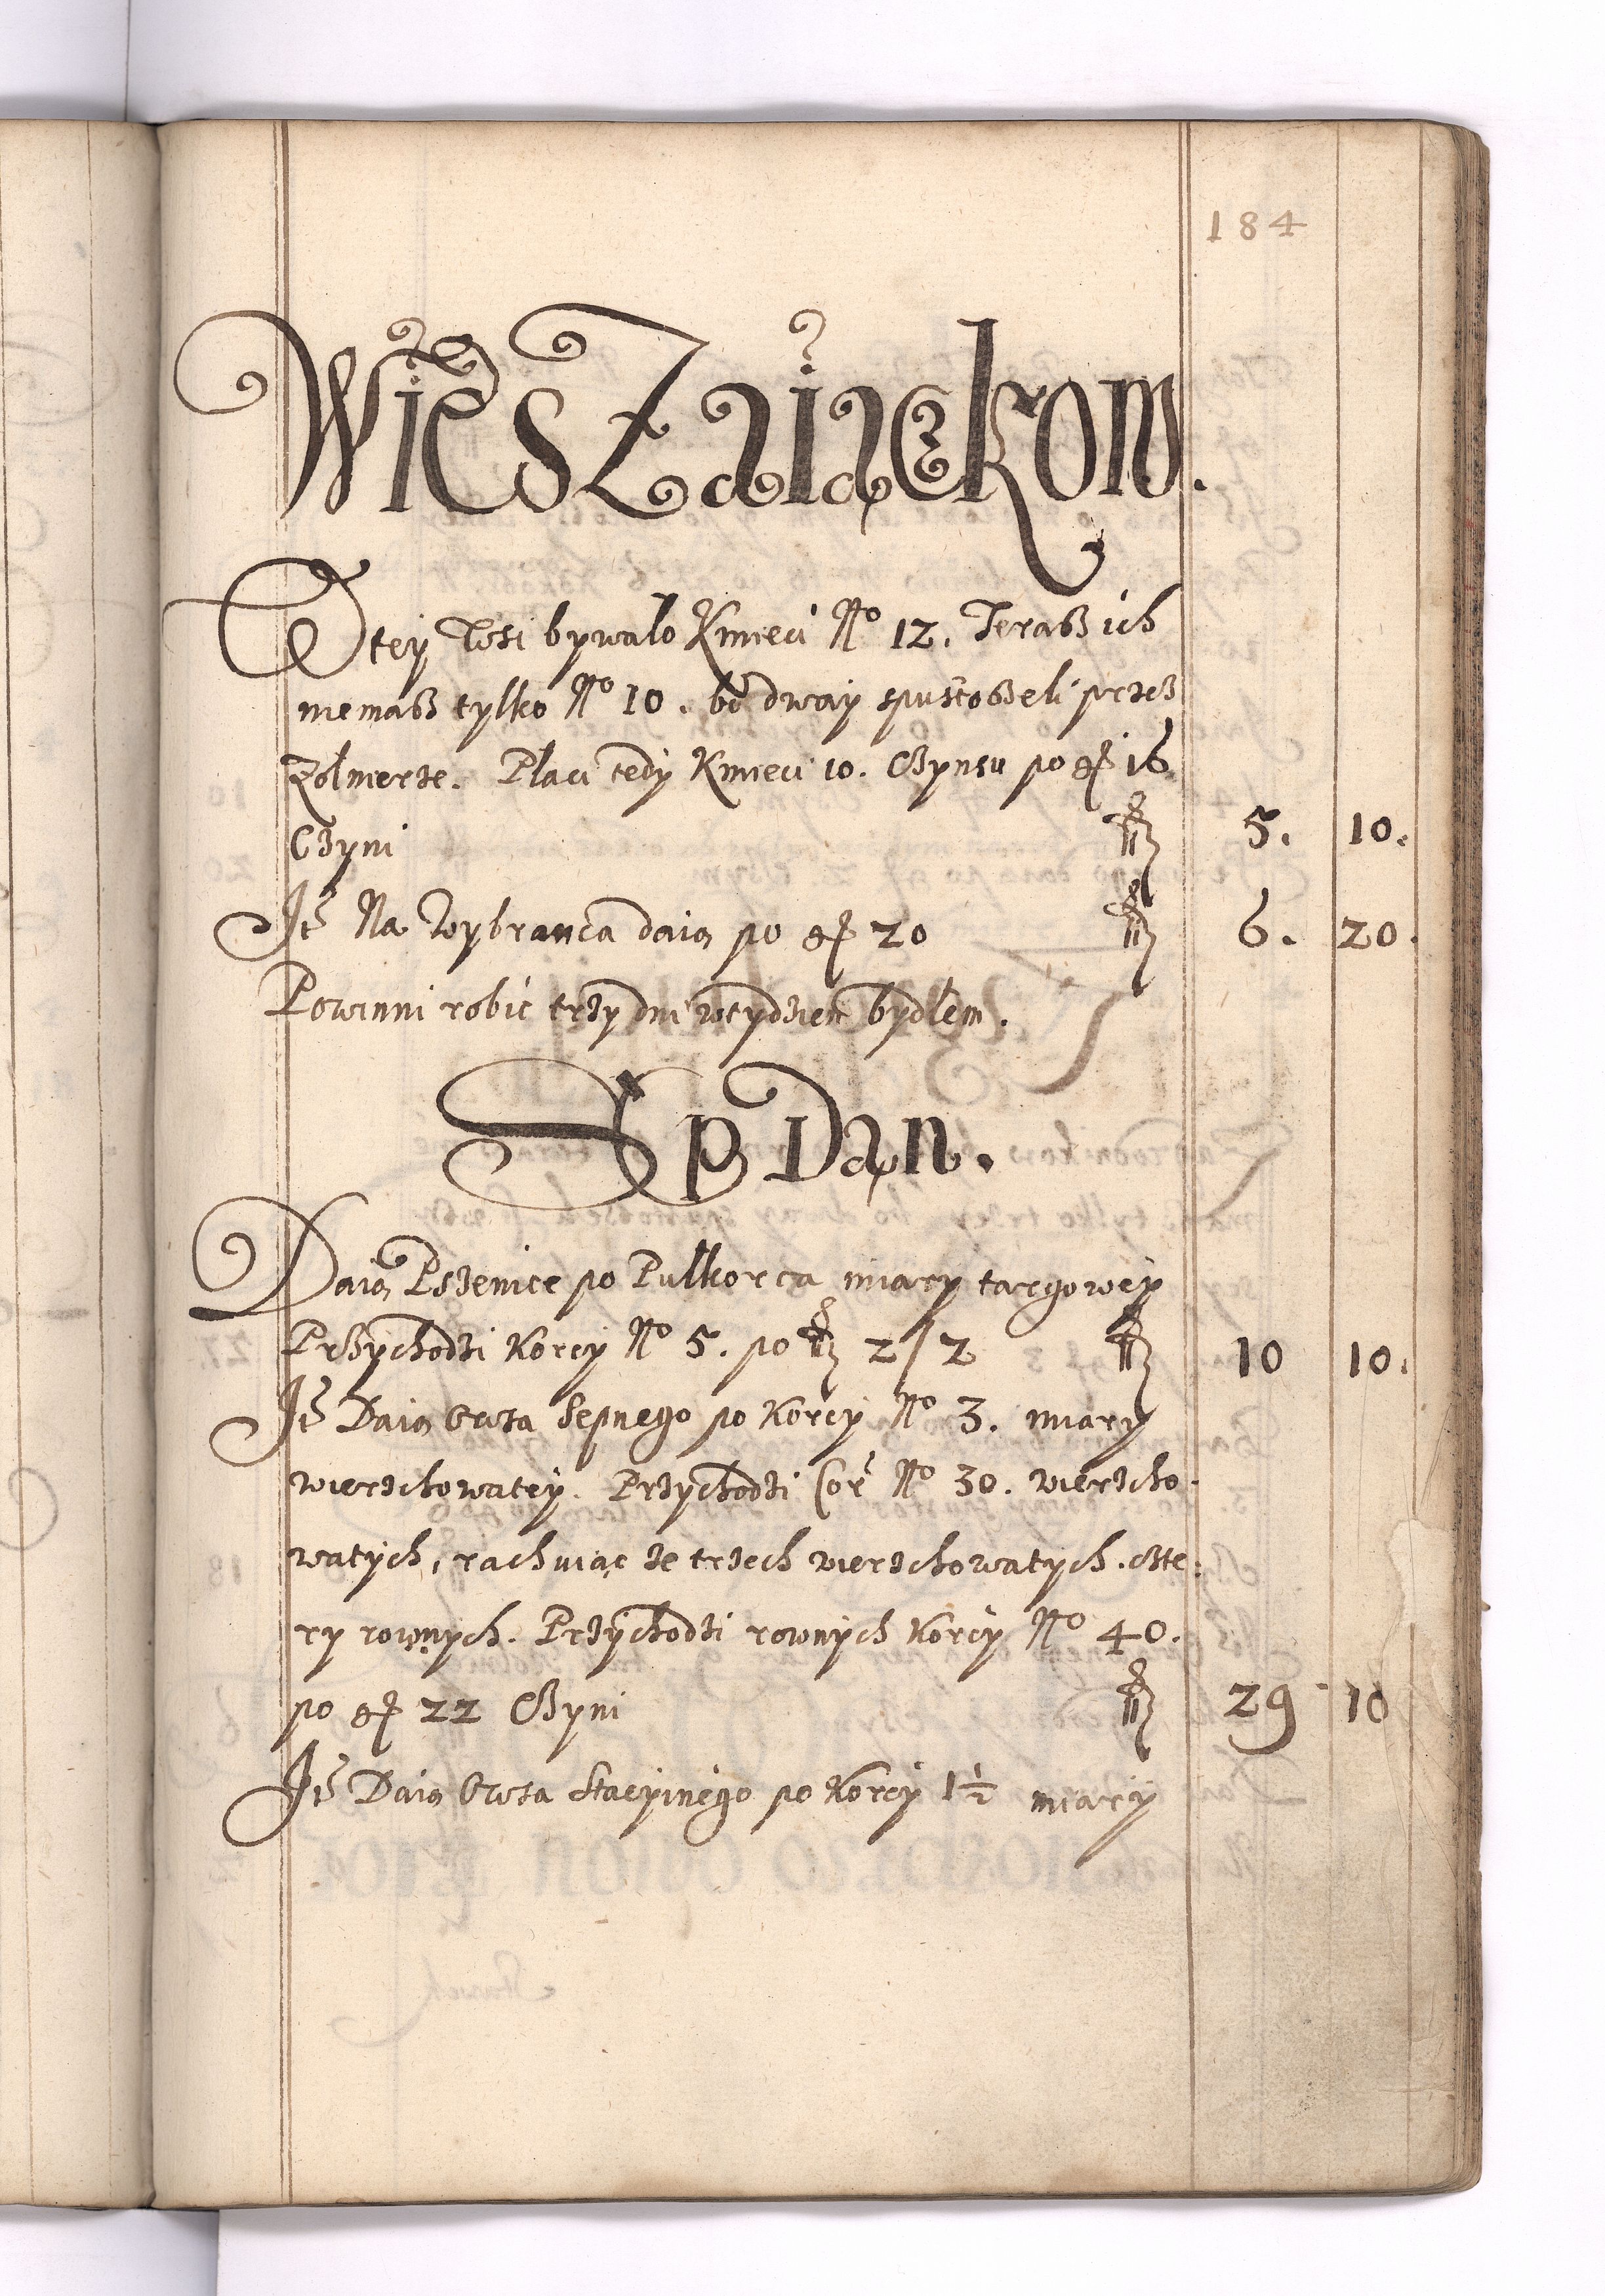 184
Wies Zaiączkow.
W tey Wsi bywało Kmieci No 12. Teraß ich
niemaß tylko No 10. bo dway spustoßeli przeß
Zolnierze. Placi tedy Kmieci 10. Czynsu po gr 16
Czyni fl 5. 10.
It Na Wybranca daią po gr 20 fl 6. 20.
Powinni robić trzy dni w tydzień bydłem.
Sep Dan.
Daią Pszenice po Pułkorca miary targowey
Przychodzi Korcy No 5. po fl 2/2 fl 10 10.
It Daią Owsa Sepnego po Korcy No 3. miary
wierzchowatey. Przychodzi Cor No 30. wierzcho-
watych, rachuiąc ze trzech wierzchowatych. czte:
ry rownych. Przychodzi rownych Korcy No 40.
po gr 22 Czyni fl 29 10
It Daią Owsa Stacyinego po Korcy 1½ miary